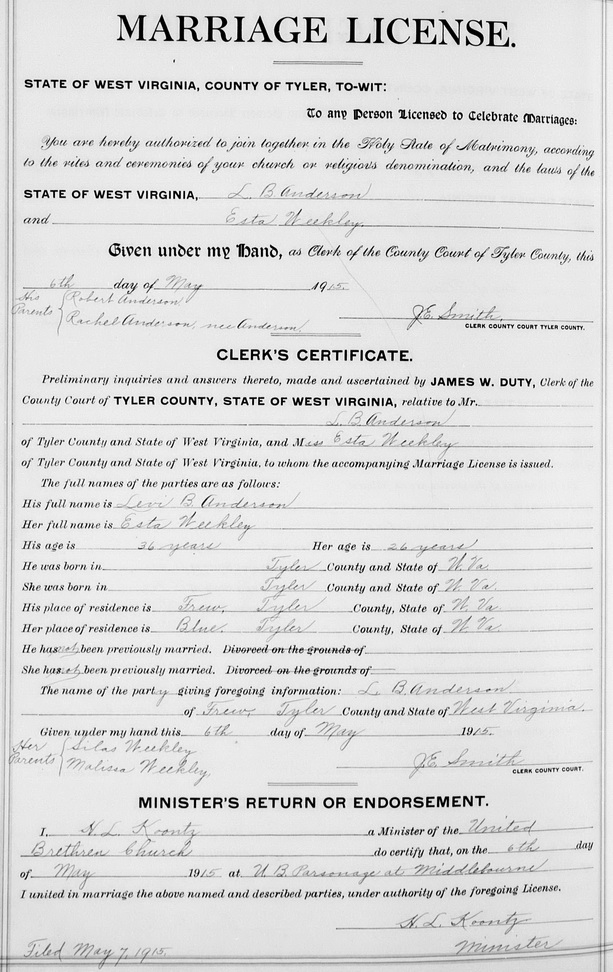 MARRIAGE LICENSE.
STATE OF WEST VIRGINIA, COUNTY OF TYLER, TO-WIT:
To any Person Licensed to Celebrate Marriages:
You are hereby authorized to join together in the Holy State of Matrimony, according
to the rites and ceremonies of your church or religious denomination, and the laws of the
STATE OF WEST VIRGINIA, L. B Anderson
and Esta Weekley.
Given under my Hand, as Clerk of the County Court of Tyler County, this
6th day of May 1915.
His Parents { Robert Anderson
Rachel Anderson, nee Anderson.
J.E. Smith,
CLERK COUNTY COURT TYLER COUNTY.
CLERK'S CERTIFICATE.
Preliminary inquiries and answers thereto, made and ascertained by JAMES W. DUTY, Clerk of the
County Court of TYLER COUNTY, STATE OF WEST VIRGINIA, relative to Mr.
L. B. Anderson
of Tyler County and State of West Virginia, and Miss Esta Weekley
of Tyler County and State of West Virginia, to whom the accompanying Marriage License is issued.
The full names of the parties are as follows:
His full name is Levi B. Anderson
Her full name is Esta Weekley
His age is 36 years Her age is 26 years
He was born in Tyler County and State of W. Va.
She was born in Tyler County and State of W. Va.
His place of residence is Frew, Tyler County, State of W. Va.
Her place of residence is Blue. Tyler County, State of W. Va
He has not been previously married. Divorced on the grounds of
She has not been previously married. Divorced on the grounds of
The name of the party giving foregoing information: L. B. Anderson
of Frew, Tyler County and State of West Virginia.
Given under my hand this 6th day of May 1915.
Her Parents { Silas Weekley
Malissa Weekley
J.E. Smith
CLERK COUNTY COURT.
MINISTER'S RETURN OR ENDORSEMENT.
I, H. L. Koontz a Minister of the United
Brethren Church do certify that, on the 6th day
of May 1915 at U. B. Parsonage at Middlebourne
I united in marriage the above named and described parties, under authority of the foregoing License.
H. L. Koontz
Minister
Filed May 7, 1915.